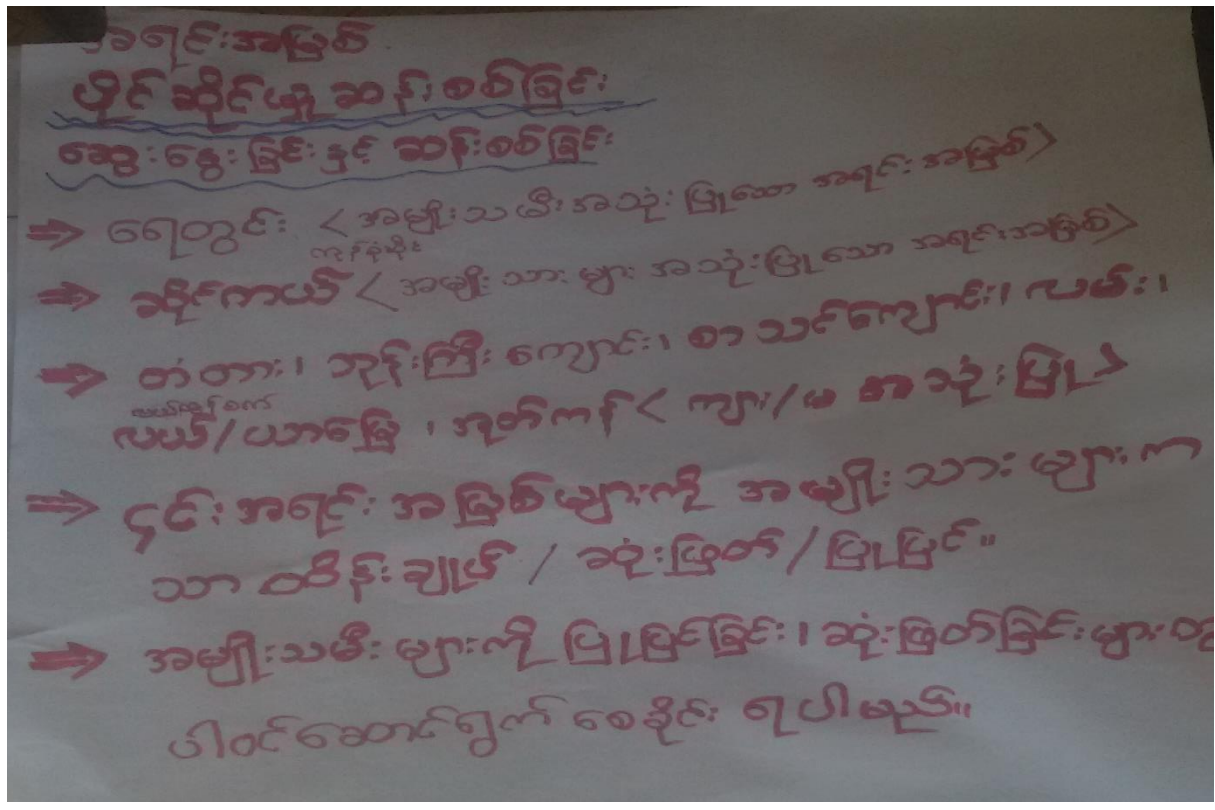 အရင်းအမြစ်
ပိုင်ဆိုင်မှု ဆန်းစစ်ခြင်း
ဆွေးနွေးခြင်းနှင့် ဆန်းစစ်ခြင်း
⇒ ရေတွင်း < အမျိုးသမီးအသုံးပြုသော အရင်းအမြစ် >
⇒ ဆိုင်ကယ် < အမျိုးသားများ အသုံးပြုသော အရင်းအမြစ် >
⇒ တံတား၊ ဘုန်းကြီးကျောင်း၊ စာသင်ကျောင်း၊ လမ်း၊
လယ်/ယာမြေ၊ အုတ်ကန် < ကျား/မ အသုံးပြု >
⇒ ၎င်းအရင်းအမြစ်များကို အမျိုးသားများက
သာ ထိန်းချုပ် / ဆုံးဖြတ် / ပြုပြင်။
⇒ အမျိုးသမီးများကို ပြုပြင်ခြင်း၊ ဆုံးဖြတ်ခြင်းများ
ပါဝင်ဆောင်ရွက်စေခိုင်း ရပါမည်။